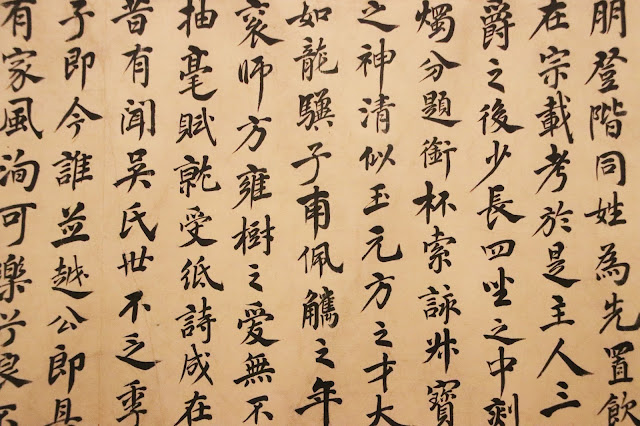 朋登階同姓為先置飲
在宗載考於是主人三
爵之後少長四坐之中刻
燭分題銜杯索詠叔寶
之神清似玉元方之才大
如龍驥子甫佩觿之年
袞師方雍樹之愛無不
抽毫賦就受紙詩成在
昔有聞吳氏世不乏季
子即今誰並越公即具
有家風洵可樂兮良不